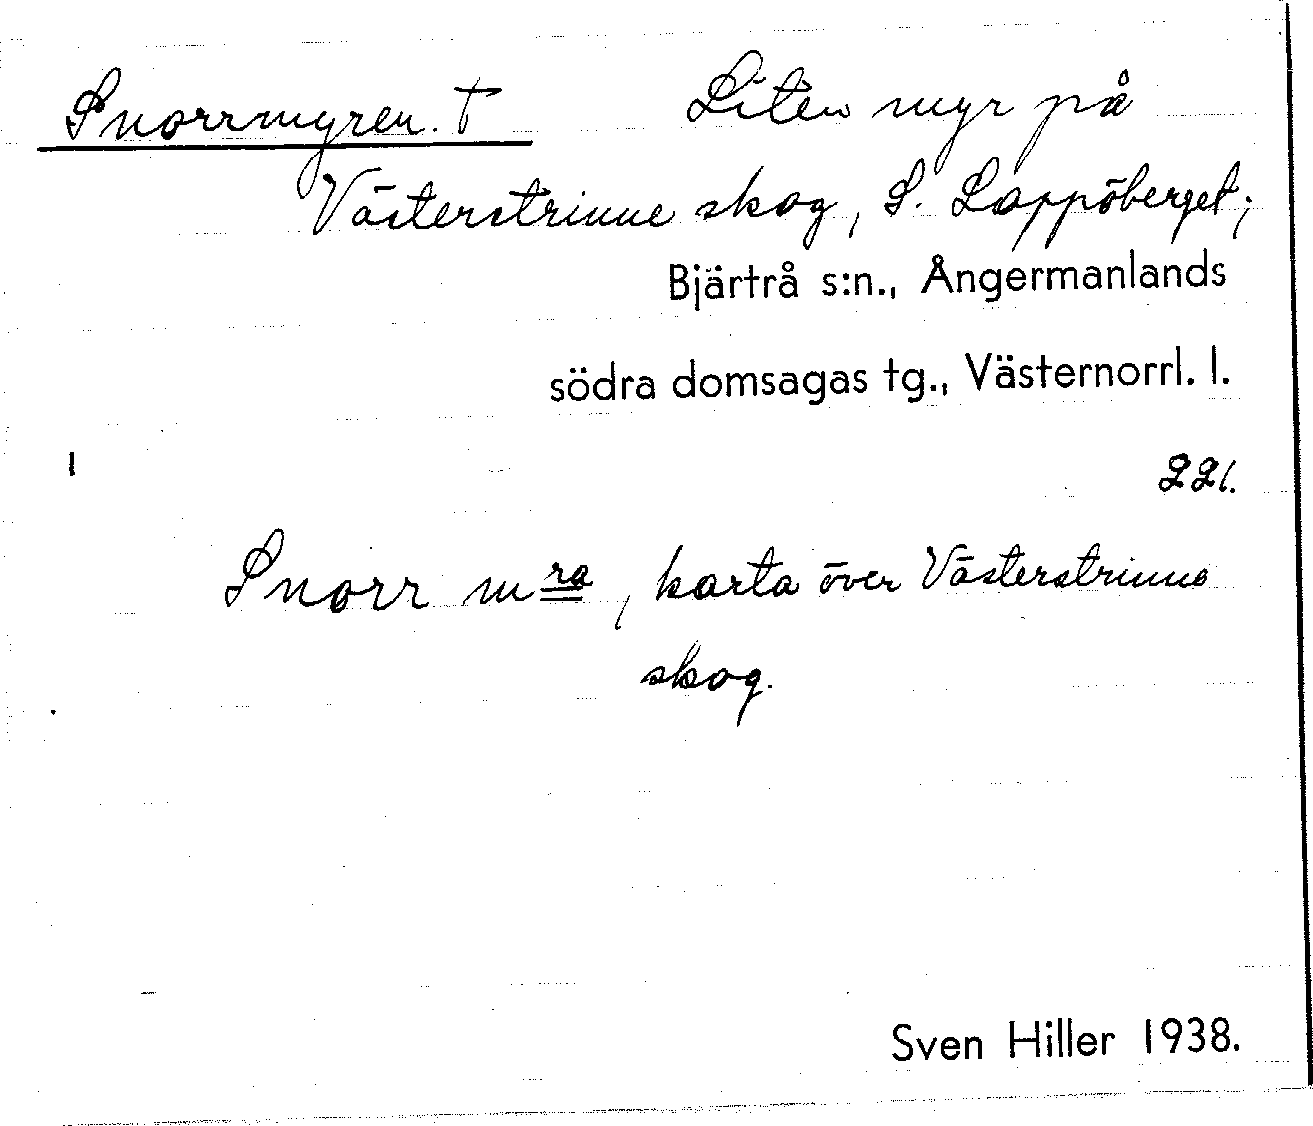 Snorrmyren. † Liten myr på
Västerstrinne skog, S. Lappöberget;
Bjärtrå s:n., Ångermanlands
södra domsagas tg., Västernorrl. l.
221.
Snorr mra, karta över Västerstrinne
skog.
Sven Hiller 1938.